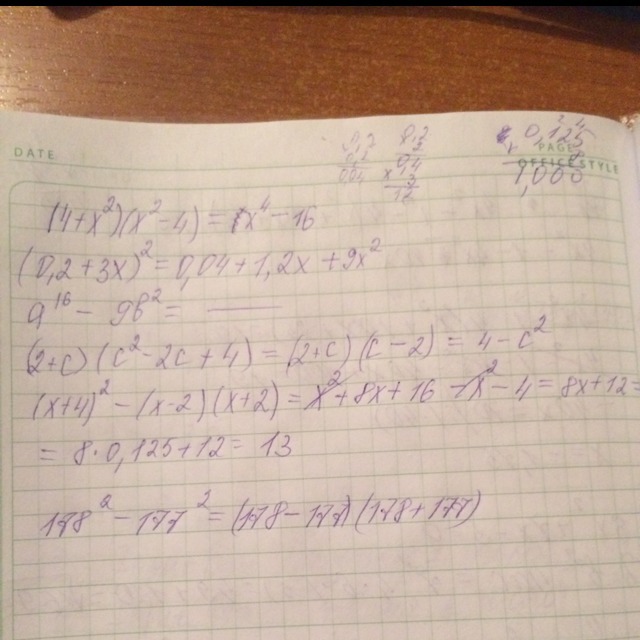 DATE
PAGE
OFFICE STYLE
0,2
0,2
0,04
0,2
0,125
1,000
(4+x²)(x²-4) = x⁴-16
(0,2+3x)² = 0,04+1,2x+9x²
a¹⁶ - 9b² = ——
(2+c)(c²-2c+4) = (2+c)(c-2) = 4-c²
(x+4)² - (x-2)(x+2) = x²+8x+16 -x²-4 = 8x+12=
= 8·0,125+12 = 13
178² - 177² = (178-177)(178+177)